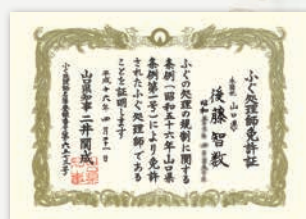 ふぐ処理師免許証
本籍地 山口県
後藤智数
ふぐの処理の規制に関する
条例(昭和五十六年山口県
条例第一号)により免許
されたふぐ処理師である
ことを証明します
山口県知事 二井関成